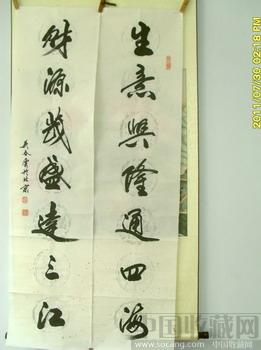 生意興隆通四海
財源茂盛達三江
2011/07/30 02:18 PM
中国收藏网
www.socang.com 中国收藏网